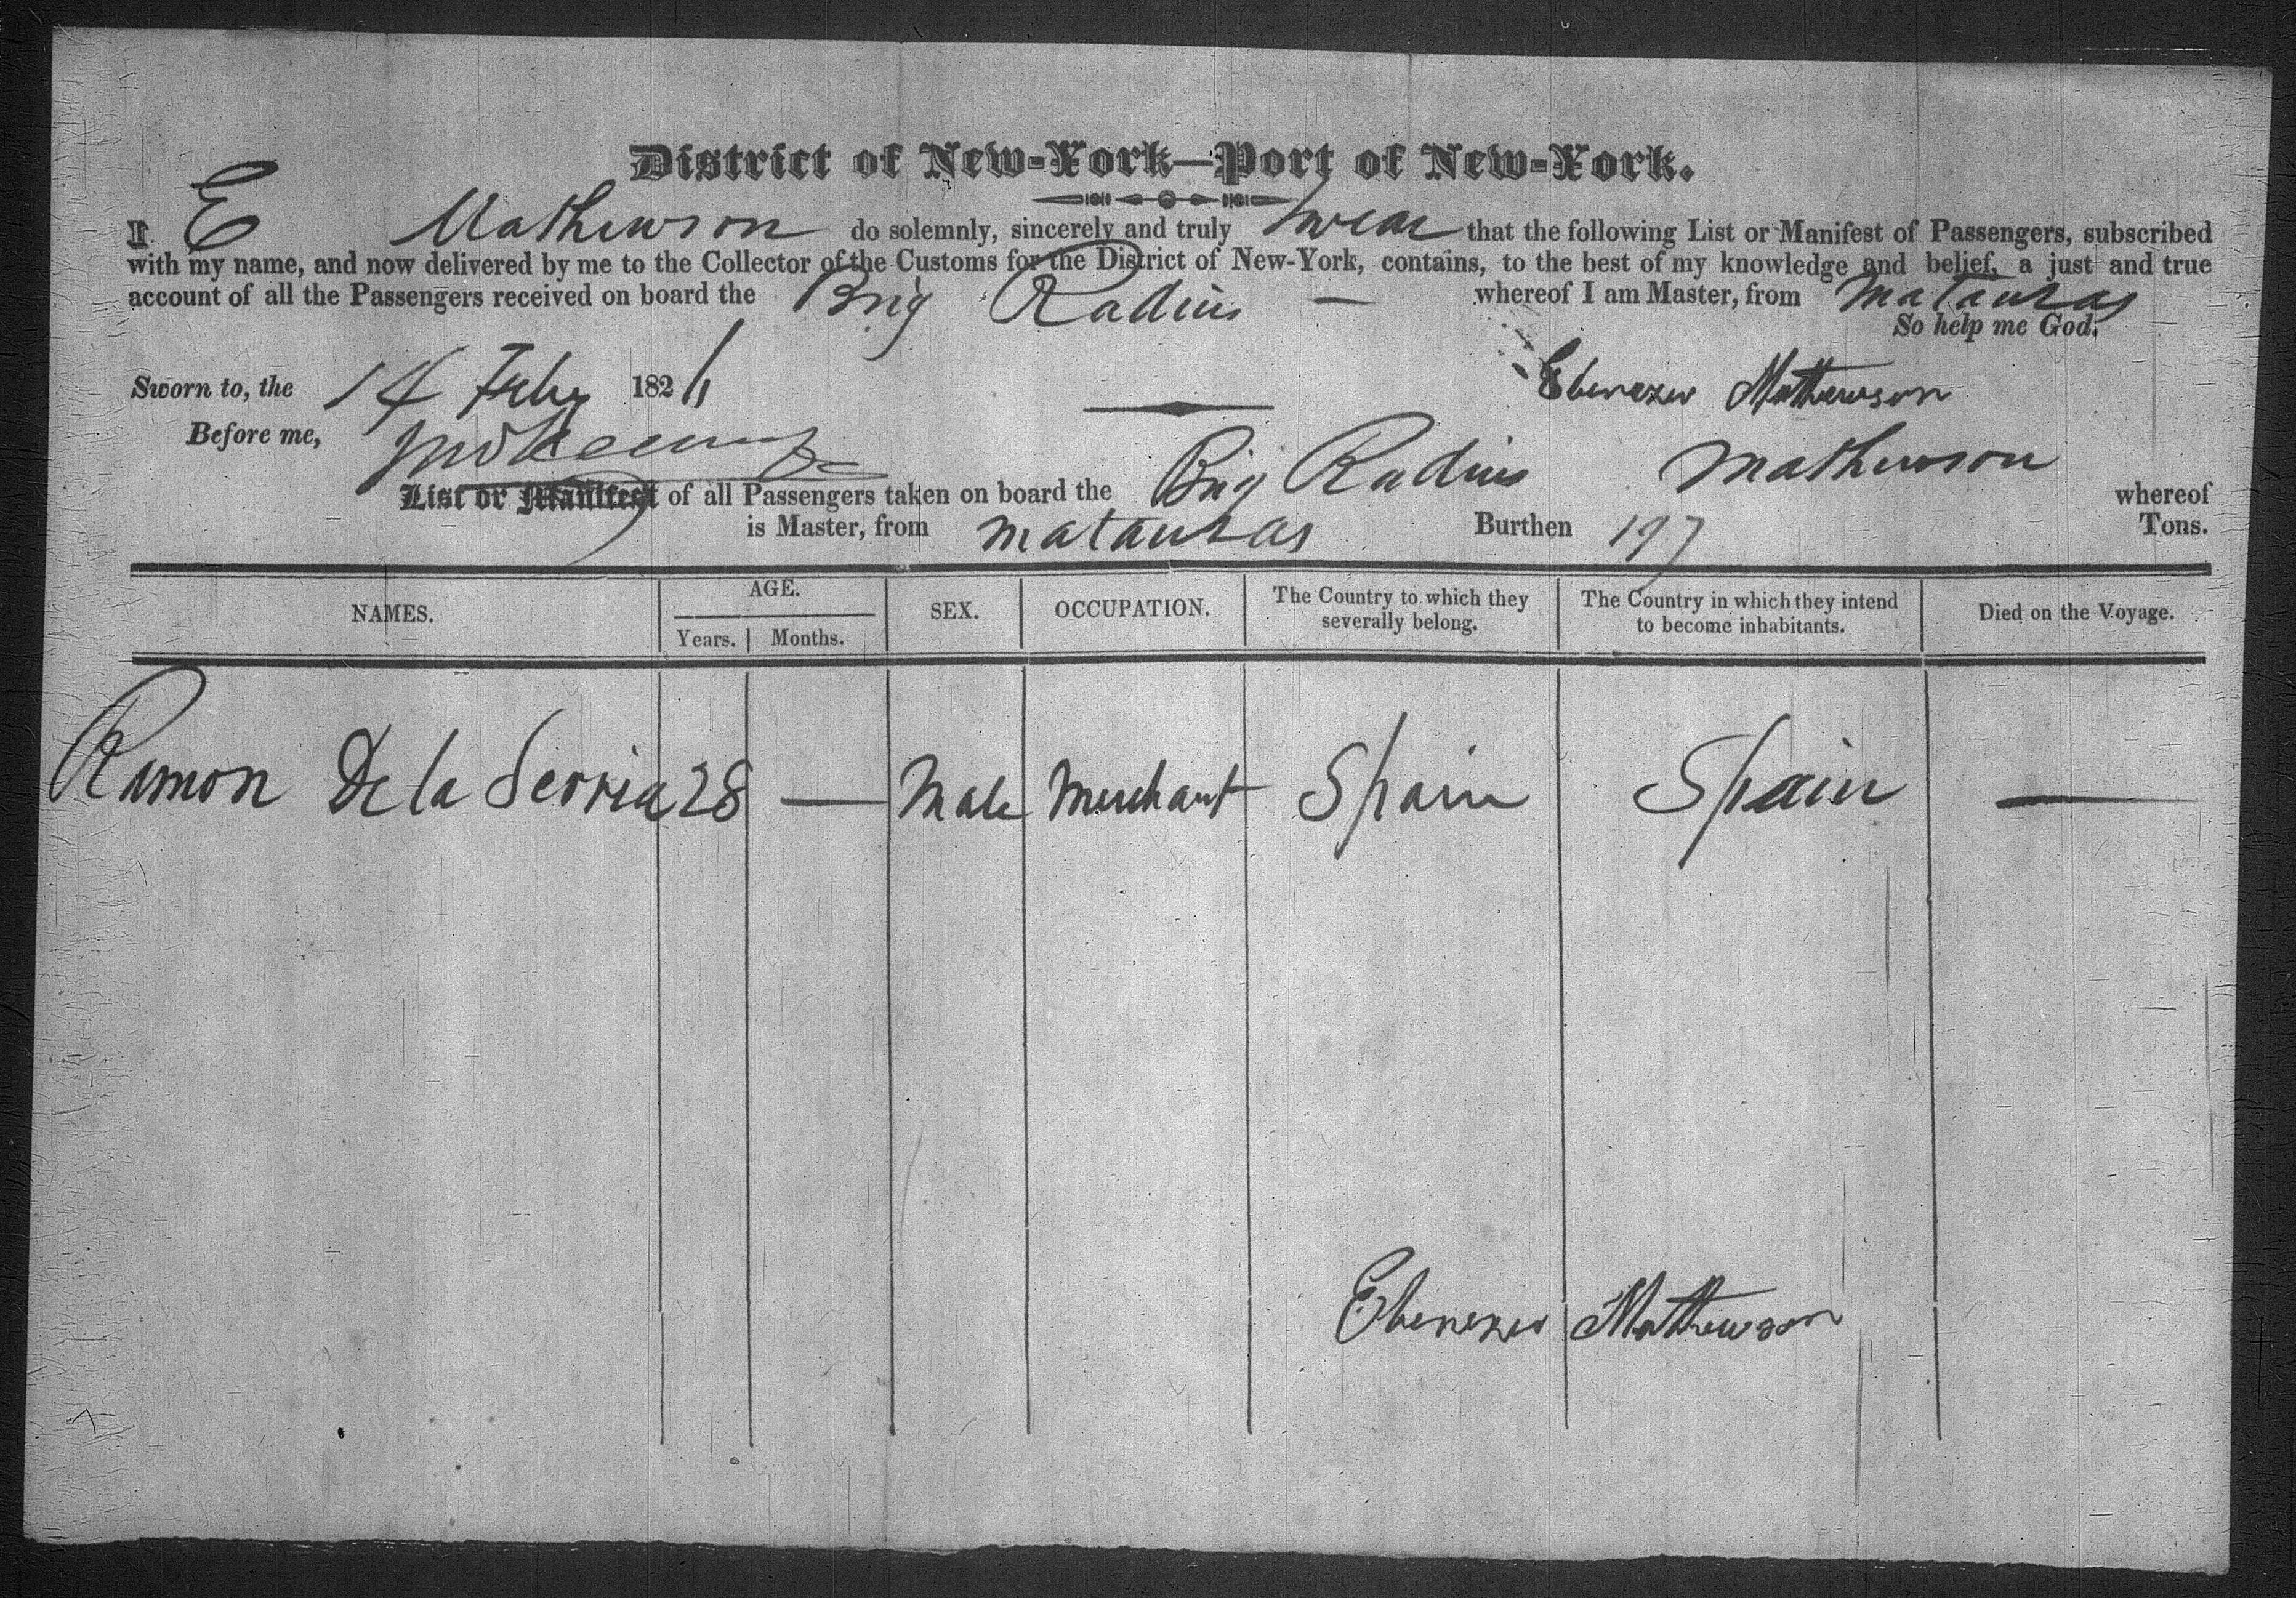 District of New-York—Port of New-York.
I E Mathewson do solemnly, sincerely and truly swear that the following List or Manifest of Passengers, subscribed
with my name, and now delivered by me to the Collector of the Customs for the District of New-York, contains, to the best of my knowledge and belief, a just and true
account of all the Passengers received on board the Brig Radius — whereof I am Master, from Matanzas
So help me God.
Sworn to, the 14 Feby 182 Ebenezer Mathewson
Before me,
List or Manifest of all Passengers taken on board the Brig Radius Mathewson whereof
is Master, from Matanzas Burthen 197 Tons.
NAMES. AGE. SEX. OCCUPATION. The Country to which they severally belong. The Country in which they intend to become inhabitants. Died on the Voyage.
Years. Months.
Ramon De la Serria 28 — Male Merchant Spain Spain —
Ebenezer Mathewson